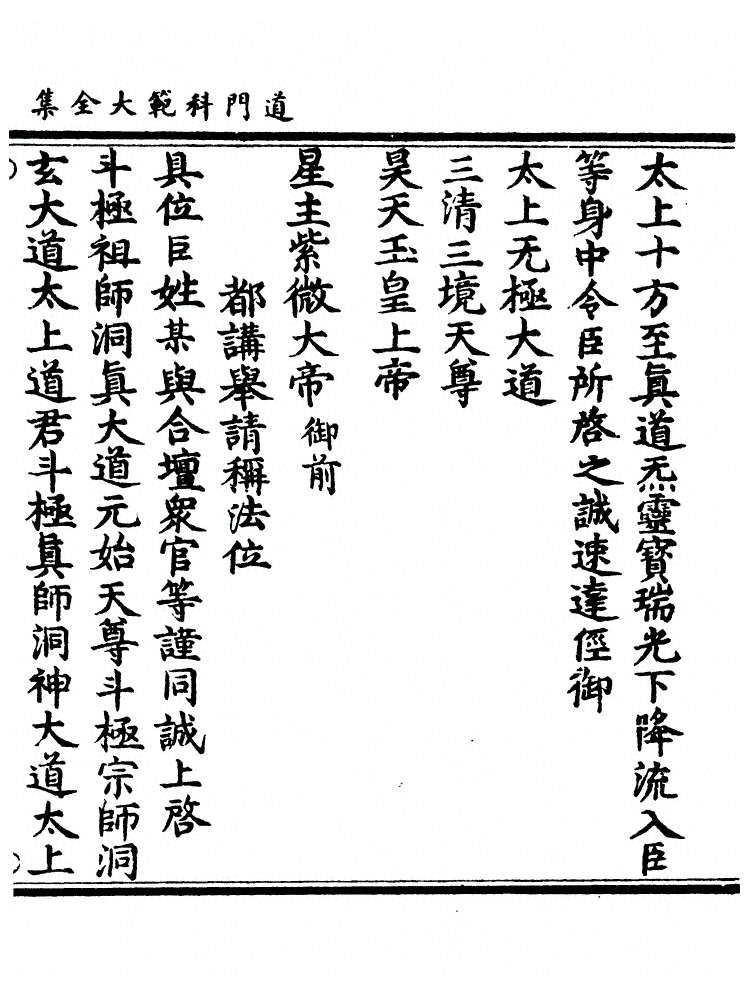 道門科範大全集
太上十方至眞道炁靈寶瑞光下降流入臣
等身中令臣所啓之誠速達徑御
太上无極大道
三清三境天尊
昊天玉皇上帝
星主紫微大帝御前
都講舉請稱法位
具位臣姓某與合壇衆官等謹同誠上啓
斗極祖師洞眞大道元始天尊斗極宗師洞
玄大道太上道君斗極眞師洞神大道太上